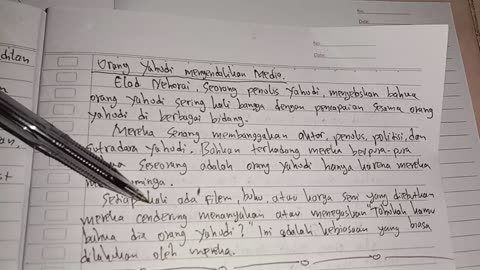 No:
Date:
No:
Date:
Orang Yahudi mengendalikan Media.
Elad Nehorai, Seorang penulis Yahudi, menyebutkan bahwa
orang Yahudi sering kali bangga dengan pencapaian sesama orang
Yahudi di berbagai bidang.
Mereka senang membanggakan aktor, penulis, politisi, dan
Sutradara Yahudi. Bahkan terkadang mereka berpura-pura
seseorang adalah orang Yahudi hanya karena mereka
Setiap kali ada Filem, buku, atau karya seni yang disebutkan
mereka cenderung menanyakan atau menegaskan "Tahukah kamu
bahwa dia orang Yahudi?" Ini adalah kebiasaan yang biasa
dilakukan oleh mereka.